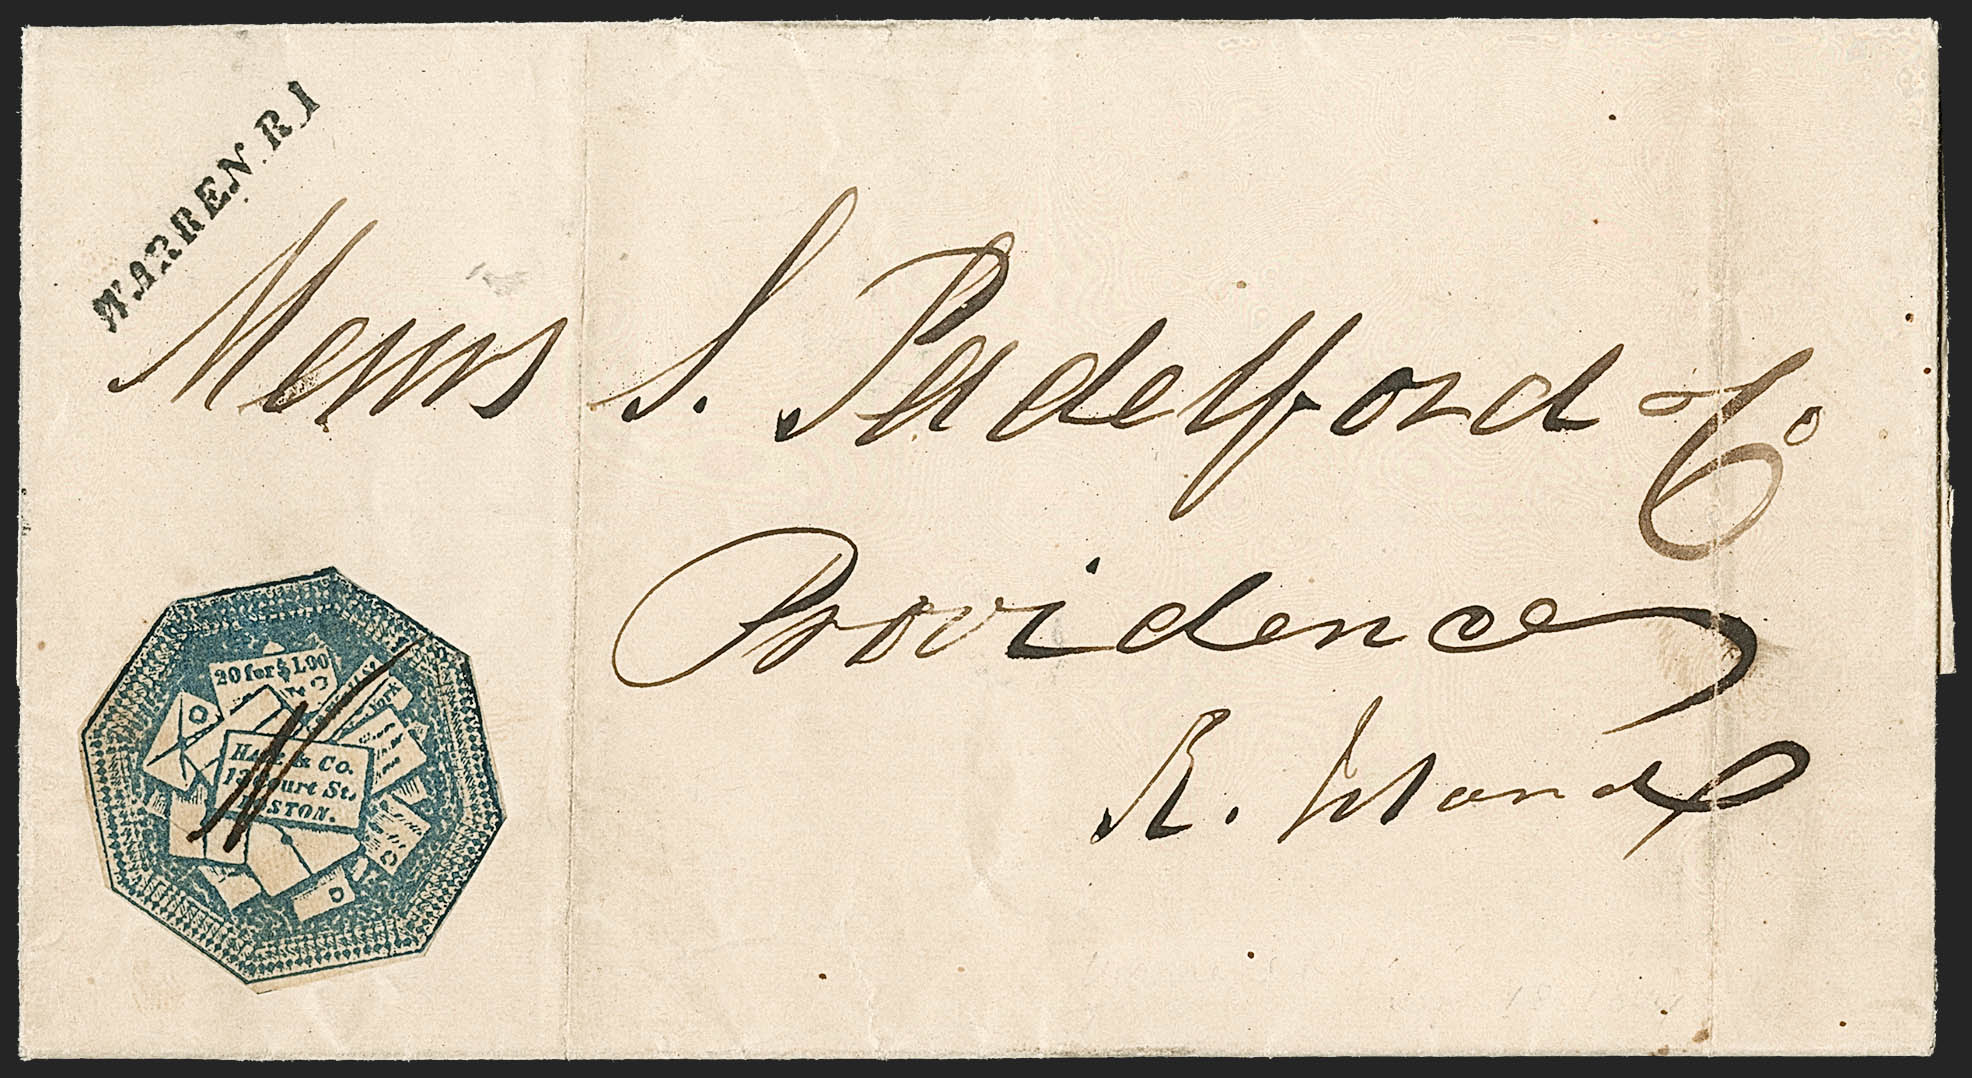 WARREN. R I
Messrs S. Padelford & Co.
Providence
R. Island
20 for $1.00
HALE & Co.
13 Court St,
BOSTON.